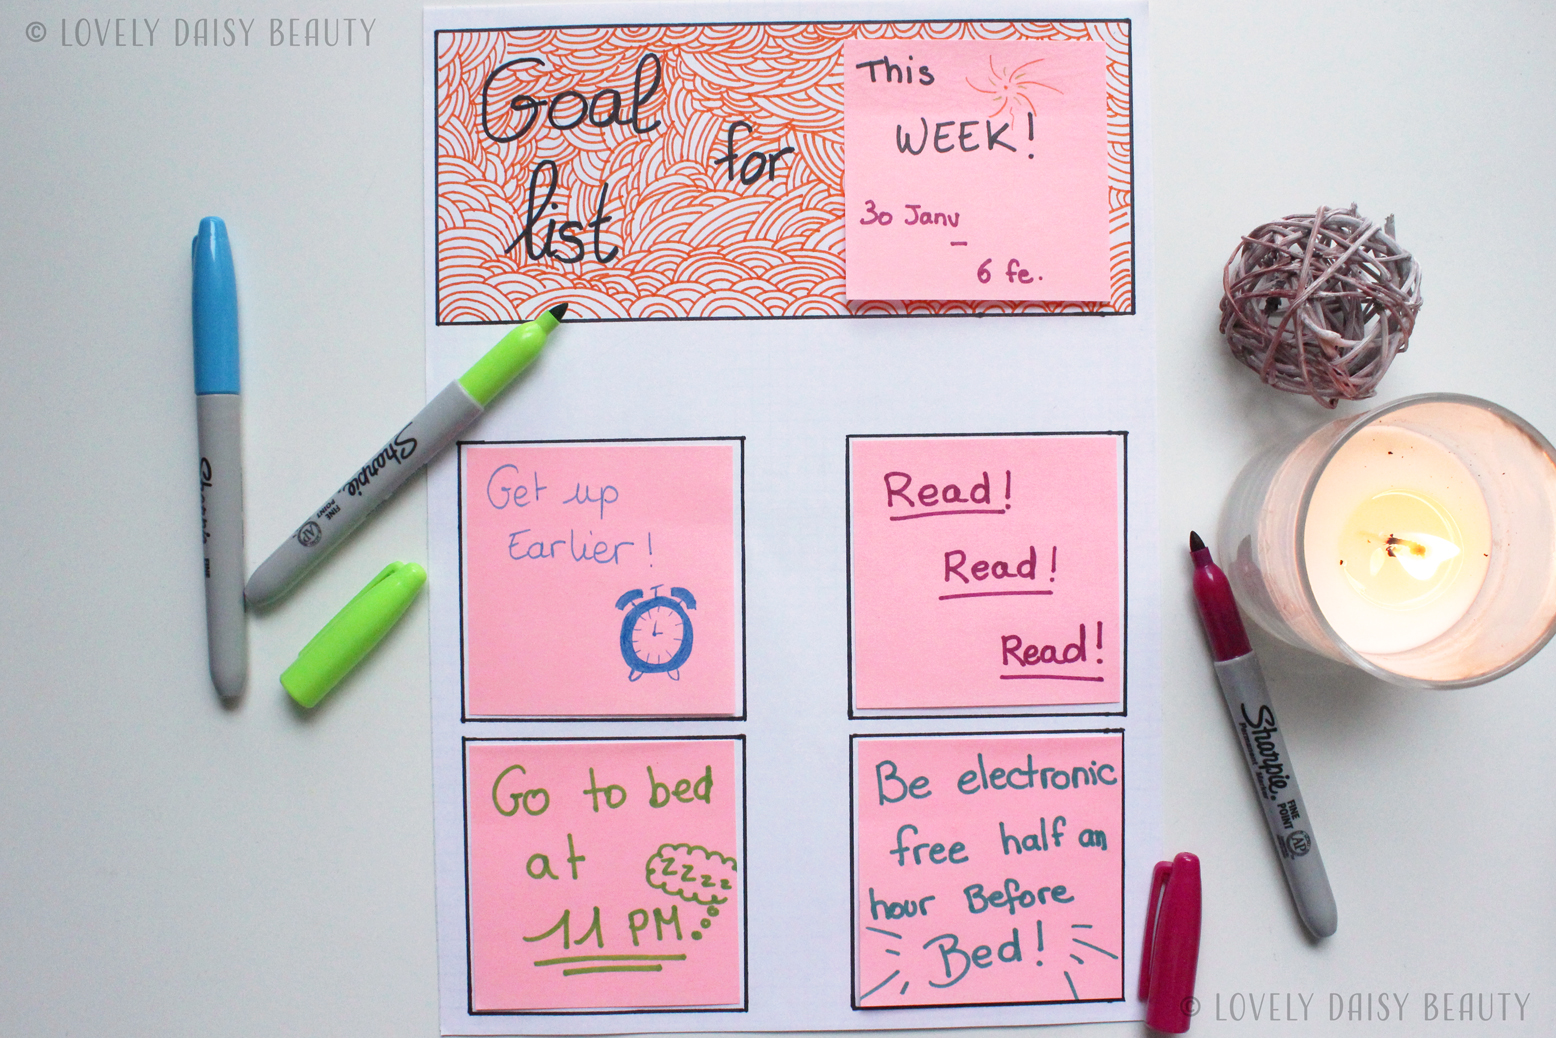 © LOVELY DAISY BEAUTY
Goal
list
for
This
WEEK!
30 Janv
-
6 fe.
Get up
Earlier!
Read!
Read!
Read!
Go to bed
at
11 PM
zzzzz
Be electronic
free half an
hour Before
Bed!
Sharpie
FINE
Sharpie.
FINE
POINT
AP
Sharpie.
Permanent Marker
FINE
POINT
AP
© LOVELY DAISY BEAUTY